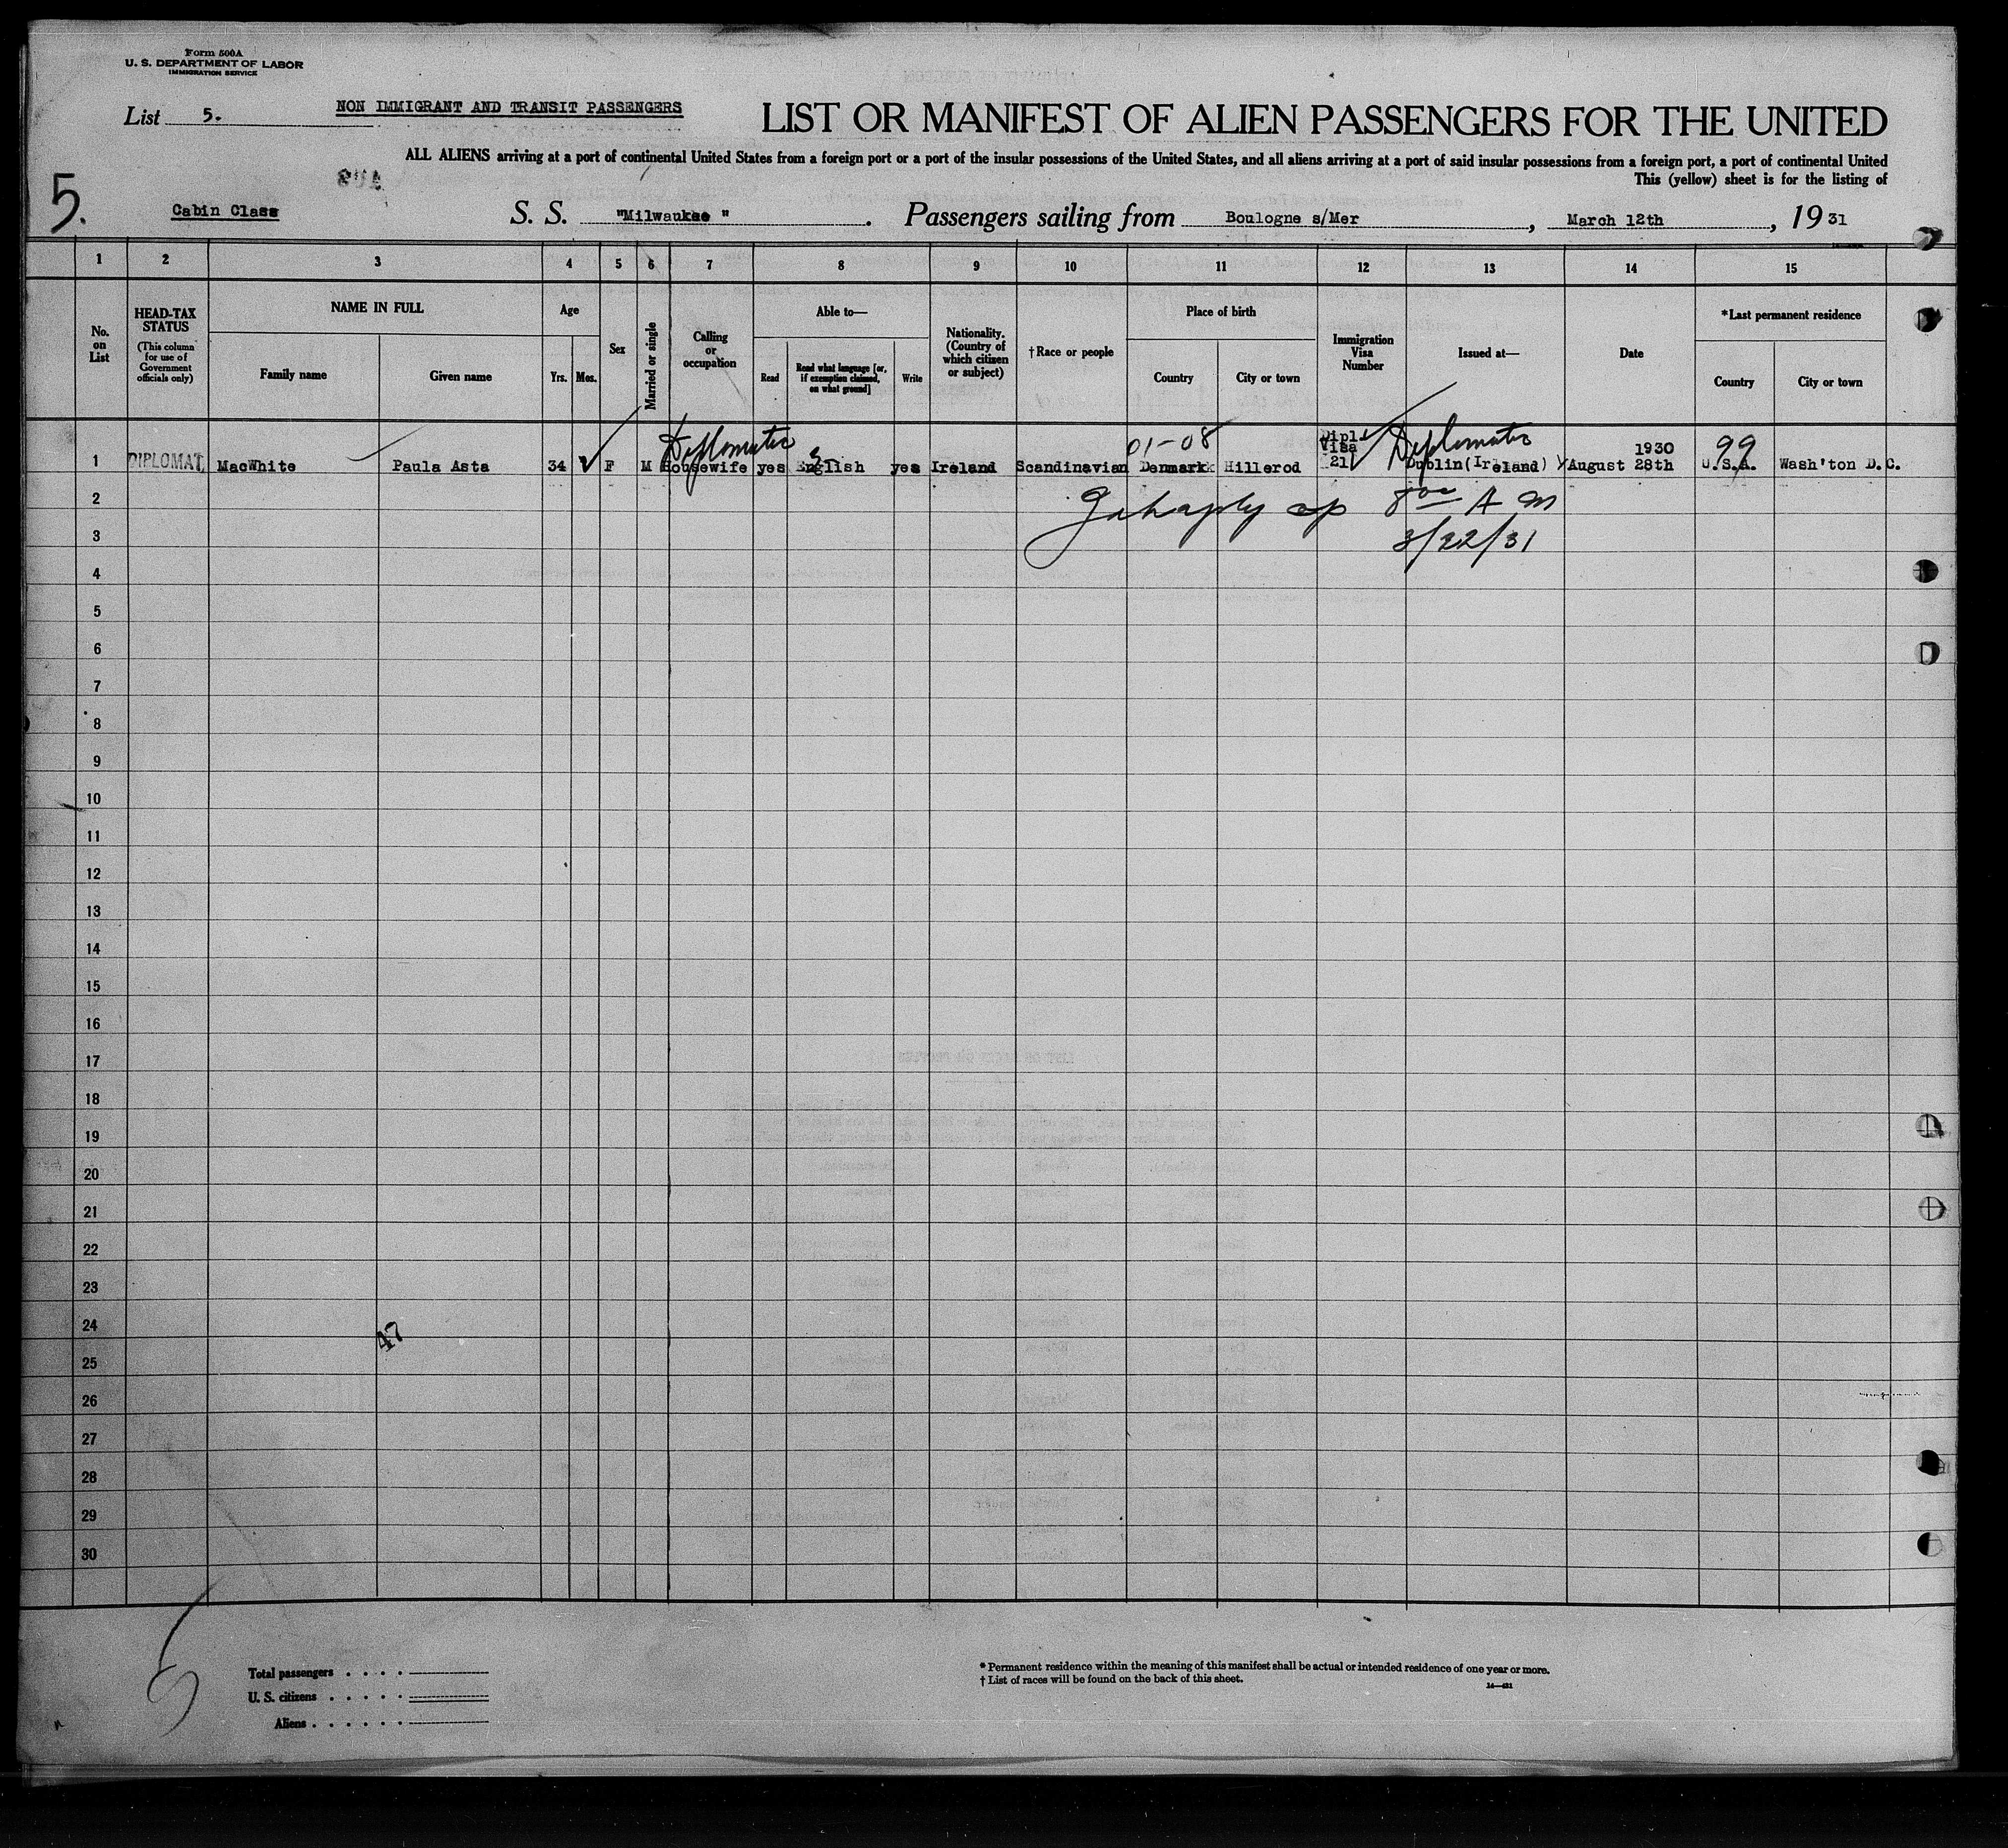 Form 500A
U. S. DEPARTMENT OF LABOR
IMMIGRATION SERVICE
List 5.
NON IMMIGRANT AND TRANSIT PASSENGERS
LIST OR MANIFEST OF ALIEN PASSENGERS FOR THE UNITED
ALL ALIENS arriving at a port of continental United States from a foreign port or a port of the insular possessions of the United States, and all aliens arriving at a port of said insular possessions from a foreign port, a port of continental United
This (yellow) sheet is for the listing of
5.
Cabin Class
S. S. "Milwaukee ". Passengers sailing from Boulogne s/Mer, March 12th, 19 31
1 2 3 4 5 6 7 8 9 10 11 12 13 14 15
No. on List
HEAD-TAX STATUS
(This column for use of Government officials only)
NAME IN FULL
Family name
Given name
Age
Yrs.
Mos.
Sex
Married or single
Calling or occupation
Able to—
Read
Read what language [or, if exemption claimed, on what ground]
Write
Nationality. (Country of which citizen or subject)
†Race or people
Place of birth
Country
City or town
Immigration Visa Number
Issued at—
Date
*Last permanent residence
Country
City or town
Diplomatic
01-08
Dipl.
Visa
Diplomatic
1930
99
1 DIPLOMAT MacWhite Paula Asta 34 F M Housewife yes English yes Ireland Scandinavian Denmark Hillerod 21 Dublin(Ireland) August 28th U.S.A. Wash'ton D.C.
2
8 00 A M
3
3/22/31
4
5
6
7
8
9
10
11
12
13
14
15
16
17
18
19
20
21
22
23
24
47
25
26
27
28
29
30
Total passengers . . . .
U. S. citizens . . . . .
Aliens . . . . . .
* Permanent residence within the meaning of this manifest shall be actual or intended residence of one year or more.
† List of races will be found on the back of this sheet.